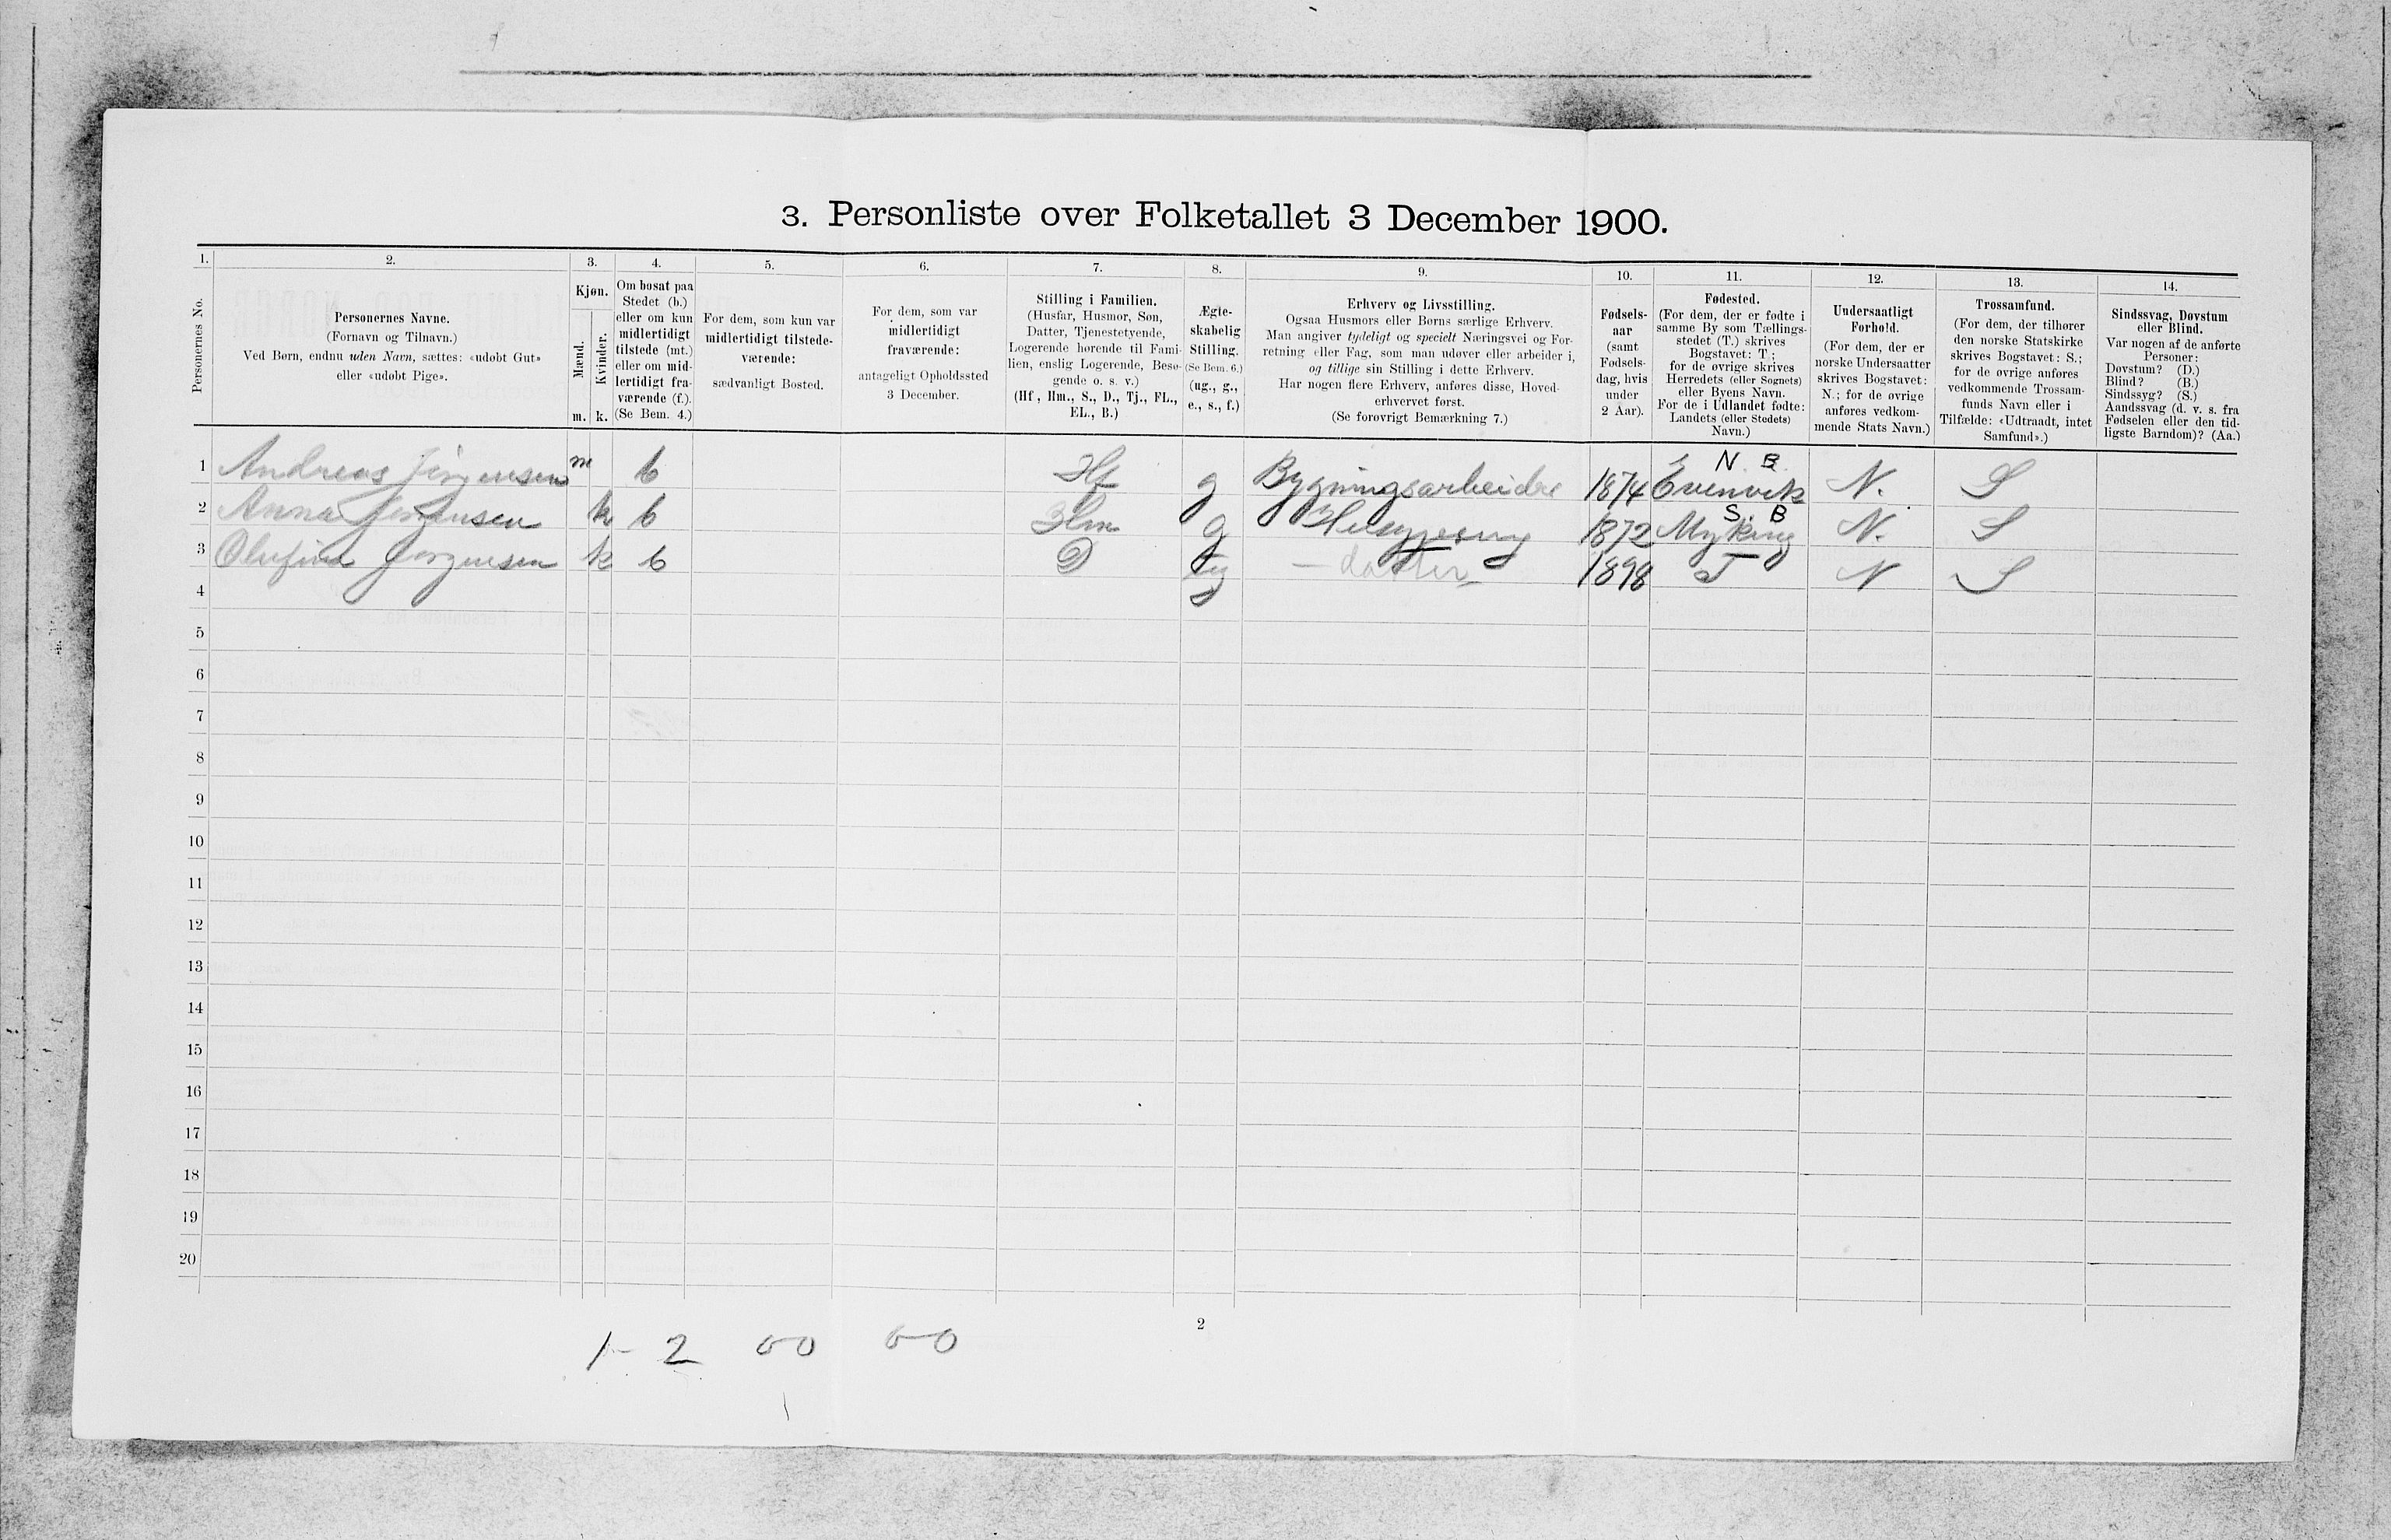 3. Personliste over Folketallet 3 December 1900.
1. 2. 3. 4. 5. 6. 7. 8. 9. 10. 11. 12. 13. 14.
Personernes No.
Personernes Navne.
(Fornavn og Tilnavn.)
Ved Børn, endnu uden Navn, sættes: «udøbt Gut»
eller «udøbt Pige».
Kjøn.
Mænd.
Kvinder.
m. k.
Om bosat paa
Stedet (b.)
eller om kun
midlertidigt
tilstede (mt.)
eller om mid-
lertidigt fra-
værende (f.).
(Se Bem. 4.)
For dem, som kun var
midlertidigt tilstede-
værende:
sædvanligt Bosted.
For dem, som var
midlertidigt
fraværende:
antageligt Opholdssted
3 December.
Stilling i Familien.
(Husfar, Husmor, Søn,
Datter, Tjenestetyende,
Logerende hørende til Fami-
lien, enslig Logerende, Besø-
gende o. s. v.)
(Hf., Hm., S., D., Tj., FL.,
EL., B.)
Ægte-
skabelig
Stilling.
(Se Bem. 6.)
(ug., g.,
e., s., f.)
Erhverv og Livsstilling.
Ogsaa Husmors eller Børns særlige Erhverv.
Man angiver tydeligt og specielt Næringsvei og For-
retning eller Fag, som man udøver eller arbeider i,
og tillige sin Stilling i dette Erhverv.
Har nogen flere Erhverv, anføres disse, Hoved-
erhvervet først.
(Se forøvrigt Bemærkning 7.)
Fødsels-
aar
(samt
Fødsels-
dag, hvis
under
2 Aar).
Fødested.
(For dem, der er fødte i
samme By som Tællings-
stedet (T.) skrives
Bogstavet: T.;
for de øvrige skrives
Herredets (eller Sognets)
eller Byens Navn.
For de i Udlandet fødte:
Landets (eller Stedets)
Navn.)
Undersaatligt
Forhold.
(For dem, der er
norske Undersaatter
skrives Bogstavet:
N.; for de øvrige
anføres vedkom-
mende Stats Navn.)
Trossamfund.
(For dem, der tilhører
den norske Statskirke
skrives Bogstavet: S.;
for de øvrige anføres
vedkommende Trossam-
funds Navn eller i
Tilfælde: «Udtraadt, intet
Samfund».)
Sindssvag, Døvstum
eller Blind.
Var nogen af de anførte
Personer:
Døvstum? (D.)
Blind? (B.)
Sindssyg? (S.)
Aandssvag (d. v. s. fra
Fødselen eller den tid-
ligste Barndom)? (Aa.)
N. B.
1 Andreas Jörgensen m b Hf g Bygningsarbeider 1874 Evenvik N. S
S. B
2 Anna Jørgensen k b Hm g 1872 Myking N. S
3 Olufina Jørgensen k b D ug — datter 1898 T N S
4
5
6
7
8
9
10
11
12
13
14
15
16
17
18
19
20
2
1 - 2 0-0 0-0